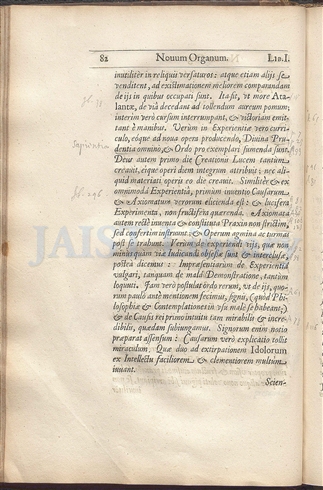 82 Nouum Organum. LIB.I.
inutiliter in reliquis versaturos: atque etiam alij se
venditent, ad existimationem meliorem comparandam
de ijs in quibus occupati sunt. Ita fit, vt more Ata-
lantæ, de via decedant ad tollendum aureum pomum;
interim verò cursum interrumpant, & victoriam emit-
tant è manibus. Verùm in Experientiæ vero curri-
culo, eóque ad noua opera producendo, Diuina Pru-
dentia omnino, & Ordo pro exemplari sumenda sunt.
Deus autem primo die Creationis Lucem tantùm
creauit, eíque operi diem integrum attribuit; nec ali-
quid materiati operis eo die creauit. Similitèr & ex
omnimoda Experientia, primùm inuentio Causarum
& Axiomatum verorum elicienda est: & lucifera
Experimenta, non fructifera quærenda. Axiomata
autem rectè inuenta & constituta Praxin non strictim,
sed confertim instruunt; & Operum agmina ac turmas
post se trahunt. Verùm de Experiendi vijs, quæ non
minùs quàm viæ Iudicandi obsessæ sunt & interclusæ,
postea dicemus: Impræsentiarum de Experientia
vulgari, tanquam de mala Demonstratione, tantùm
loquuti. Iam verò postulat ordo rerum, vt de ijs, quo-
rum paulò antè mentionem fecimus, Signis, (Quòd Phi-
losophiæ & Contemplationes in vsu malè se habeant;)
& de Causis rei primo intuitu tam mirabilis & incre-
dibilis, quædam subiungamus. Signorum enim notio
præparat assensum: Causarum verò explicatio tollit
miraculum. Quæ duo ad extirpationem Idolorum
ex Intellectu faciliorem & clementiorem multùm
iuuant.
Scien-
Sapientia